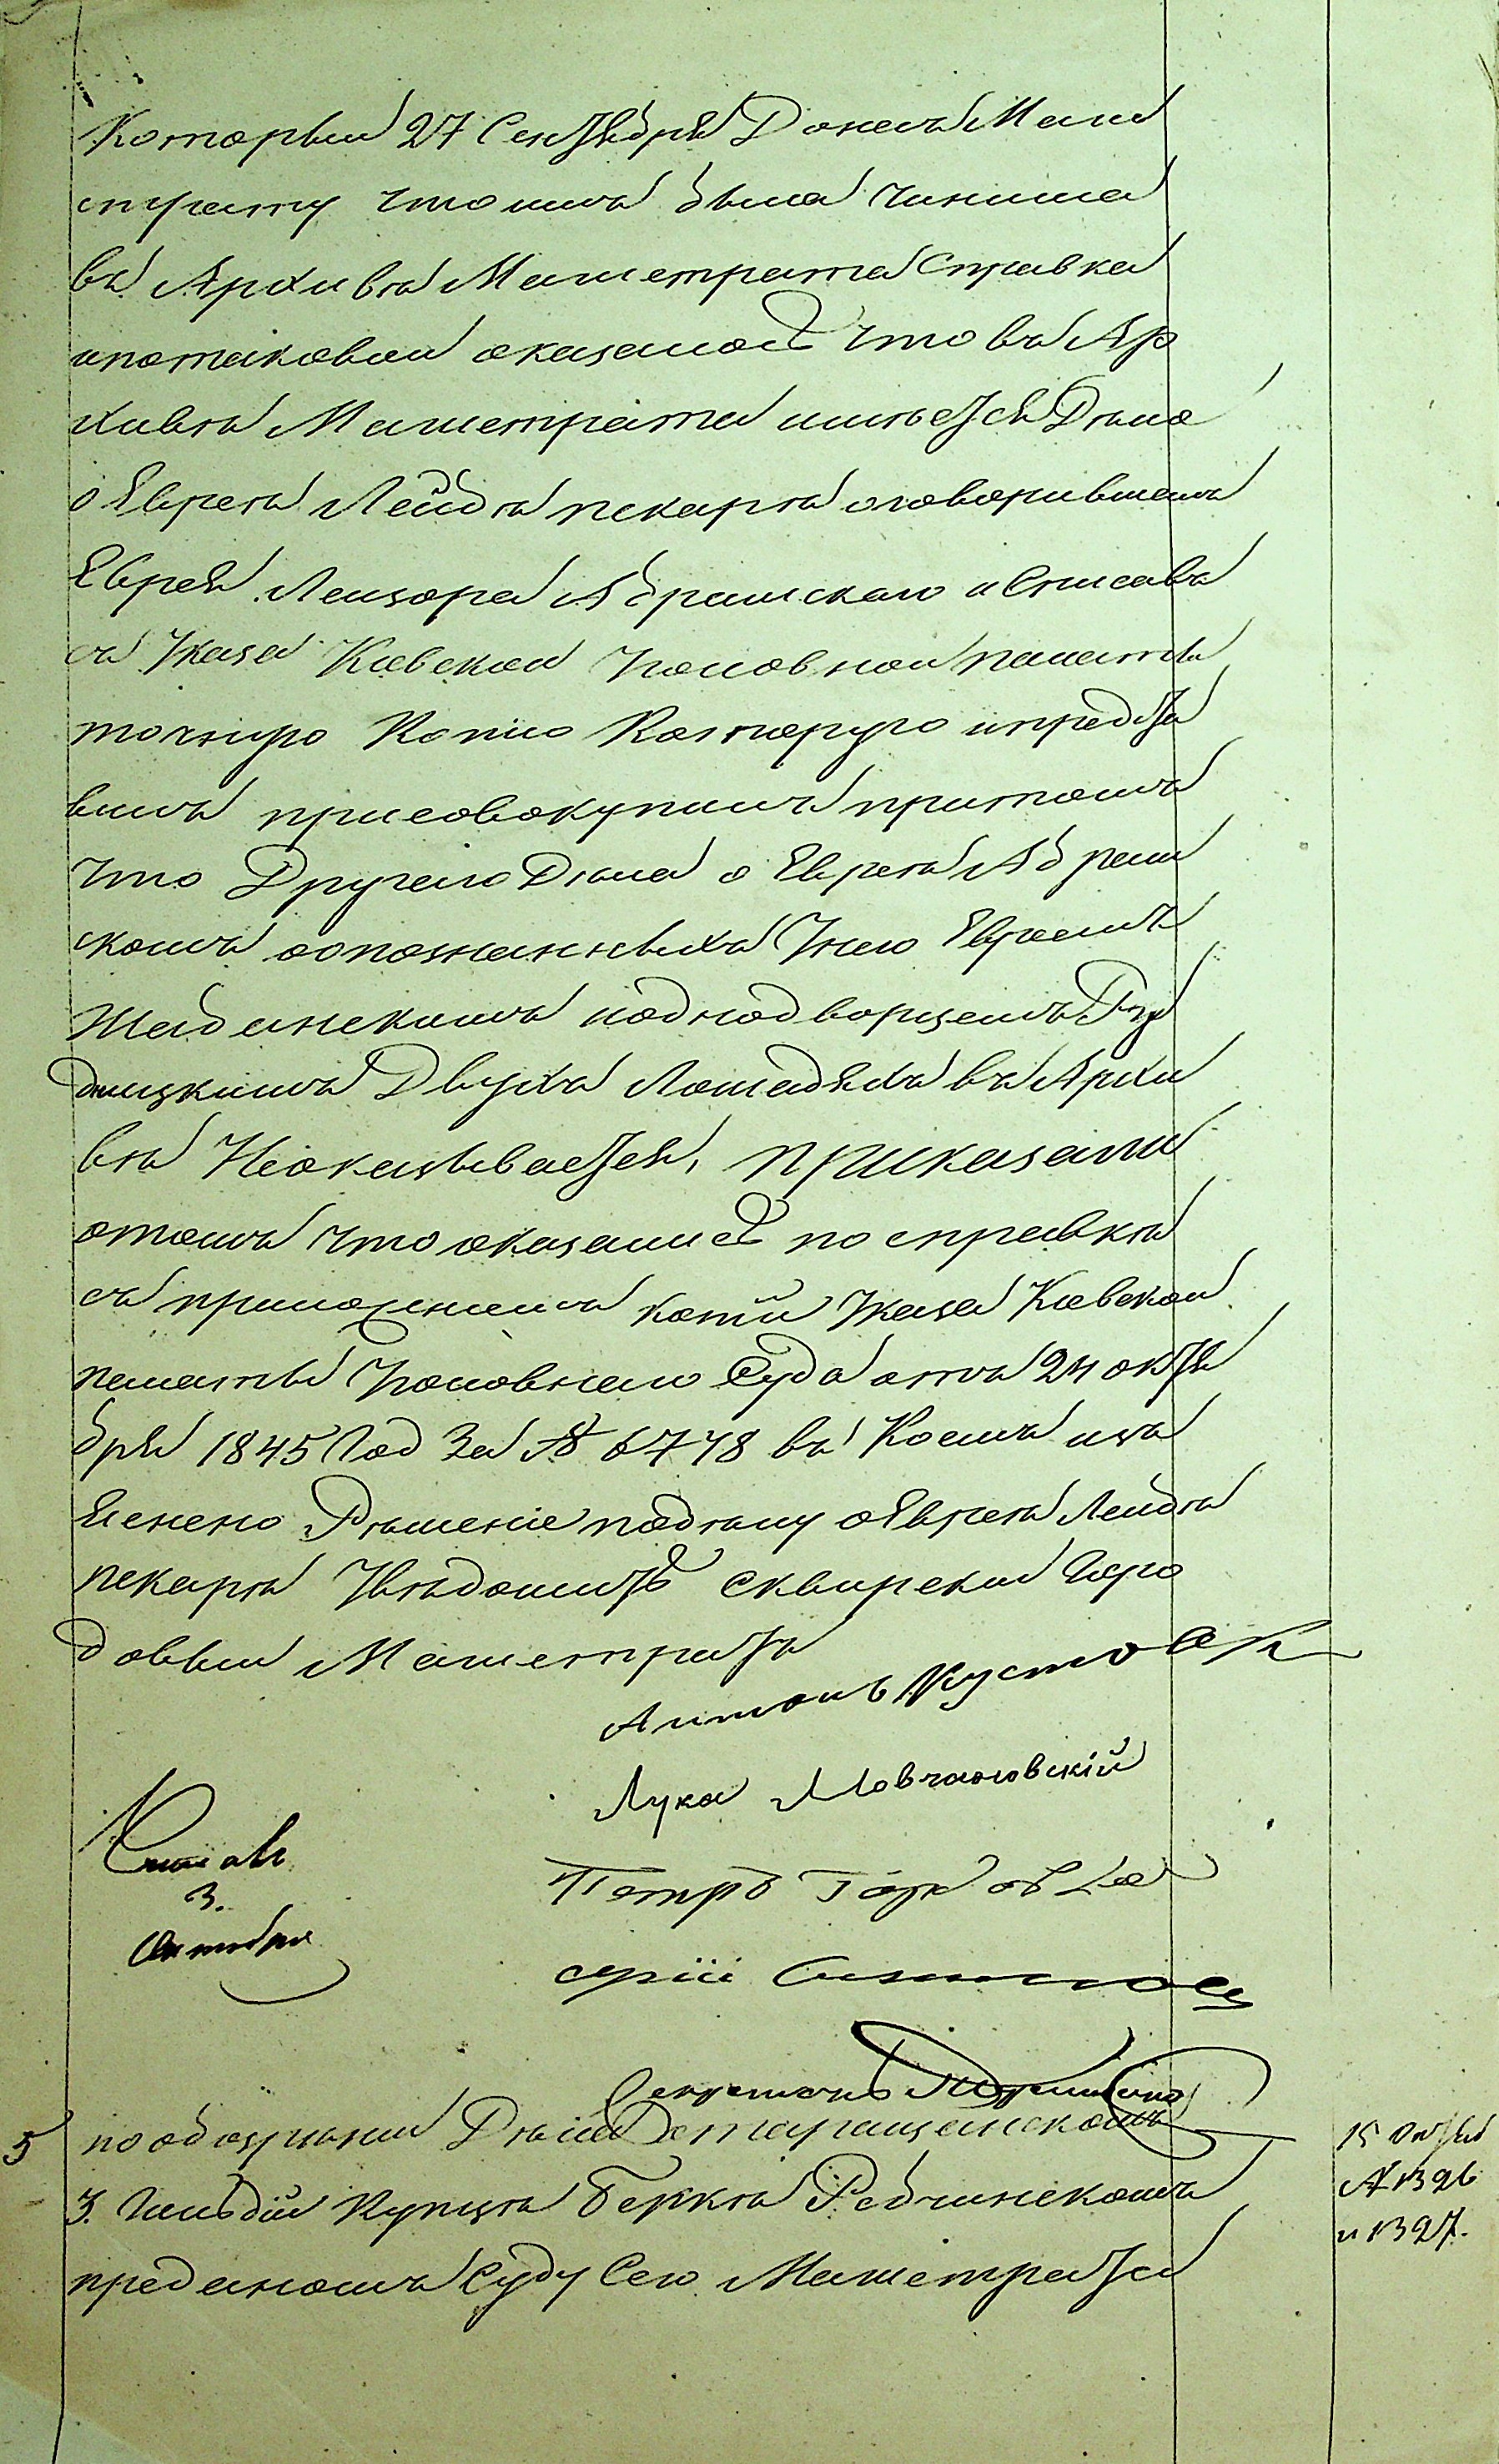 Который 27 Сентября Донесъ Маги
страту что имъ была чинима
въ Архивѣ Магистрата Справка
и по таковой оказалось что въ Ар
хивѣ Магистрата имѣется Дѣло
о Евреѣ Лейбѣ пекарѣ оговорившемъ
Еврея Лейзора Абрамскаго и Списавъ
съ Указа Киевской Уголовной палаты
точную Копию Которую и предста
вилъ присовокупилъ притомъ
что Другаго Дѣла о Евреѣ Абрам
скомъ о опознанныхъ У него Евреемъ
и однодворцемъ
Двухъ Лошадяхъ въ Архи
вѣ Неоказывается, приказали
о томъ что оказалось по справкѣ
съ приложениемъ копіи Указа Киевской
палаты Уголовнаго Суда отъ 24 октя
бря 1845 Год За № 6748 въ Коемъ изъ
яснено Рѣшеніе по дѣлу о Евреѣ Лейбѣ
пекарѣ Увѣдомить Сквирский Горо
довый Магистратъ
Антонъ
Лука Мовчановскій
Петръ
3.
Октября
Секретарь
5 по обозрѣнии Дѣла о Таращанскомъ
3. Гильдіи Купцѣ Беркѣ
преданомъ Суду Сего Магистрата
15 Октяб
№ 1326
и 1327.